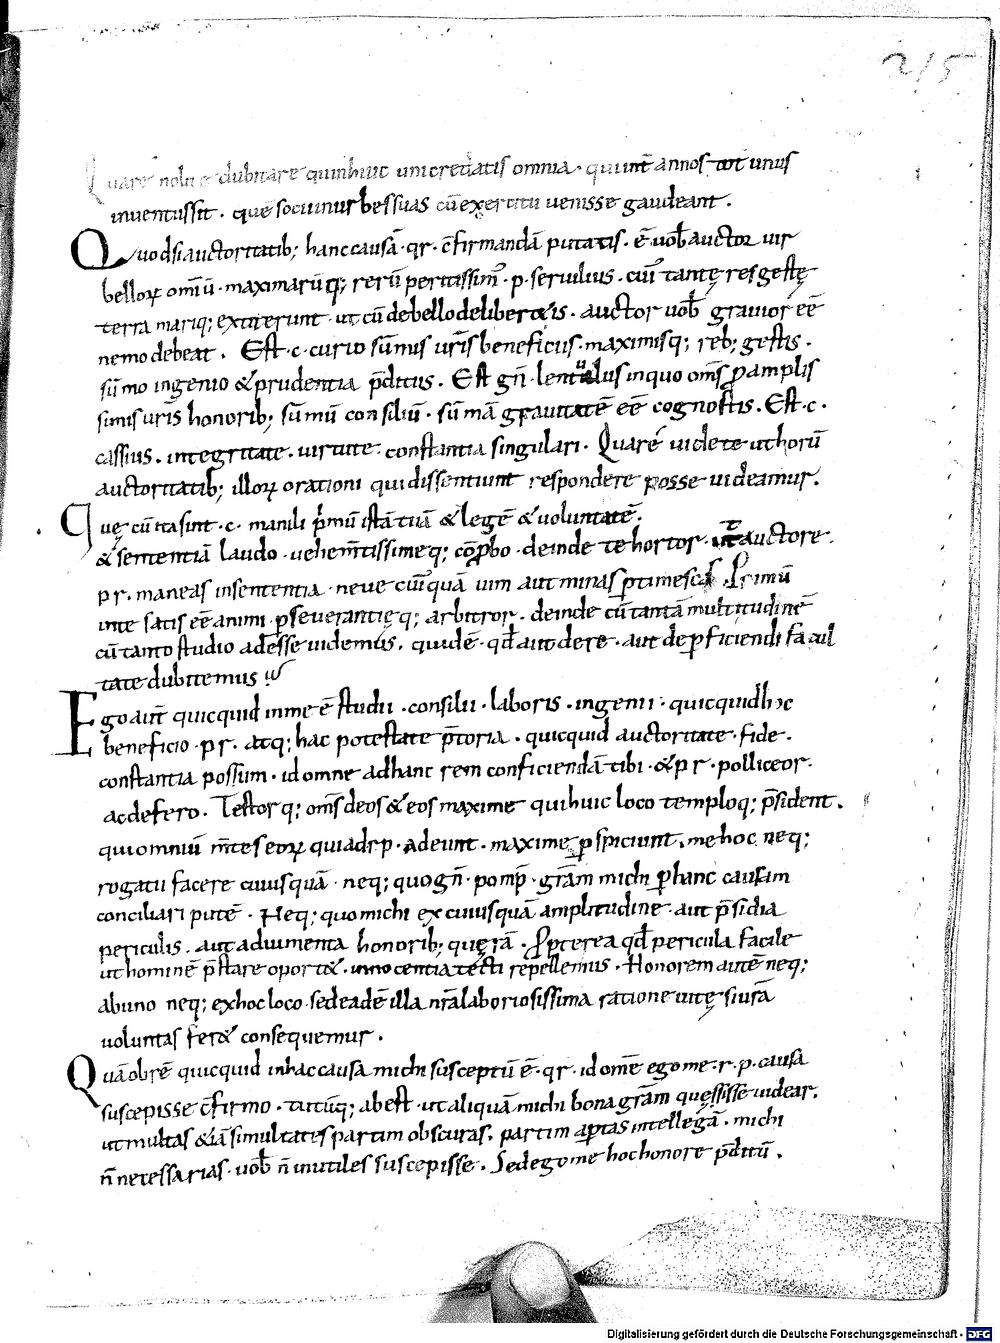 215
Quare nolite dubitare quin huic uni credatis omnia · qui int̄ annos tot unus
inuentus sit · quē socii inurbes suas cū exercitu uenisse gaudeant .
Quodsi auctoritatib; hanc causā · qr̄ · c̄firmandā putatis · ē uob̄ auctor uir
bellorꝝ om̄iū · maximarūq; rerū peritissim᷒ · p · seruilius · cui᷒ tantę res gestę
terra mariq; extiterunt · ut cū de bello deliberetis · auctor uob̄ grauior eē
nemo debeat . Est · c · curio sūmis uris̄ beneficiis · maximisq; reb; gestis .
sūmo ingenio & prudentia p̄ditus . Est gn̄ · lentulus in quo om̄s ꝓ amplis
simis uris̄ honorib; sūmū consiliū · sūmā grauitatē eē cognostis . Est · c ·
cassius . integritate · uirtute · constantia singulari · Quare uidete ut horū
auctoritatib; illorꝝ orationi qui dissentiunt respondere posse uideamur .
Quę cū ita sint · c · manili p̄mū istā tuā & legē & uoluntatē .
& sententiā laudo · uehem̄tissimeq; cōꝓbo · deinde te hortor · ut auctore ·
p r . maneas in sententia · neue cui᷒quā uim aut minas ꝑtimescas . Primū
in te satis eē animi ꝑseuerantięq; arbitror . deinde cū tantā multitudinē
cū tanto studio adesse uidemus . quidē · qd̄ aut de re · aut de ꝑficiendi facul
tate dubitemus
Ego aut̄ quicquid in me ē studii · consilii · laboris · ingenii · quicquid hoc
beneficio · p r . atq; hac potestate p̄toria . quicquid auctoritate · fide ·
constantia possum · id omne ad hanc rem conficiendā tibi · & p r · polliceor ·
ac defero . Testorq; om̄s deos & eos maxime qui huic loco temploq; p̄sident .
qui omniū m̄tes eorꝝ qui ad r p · adeunt · maxime ꝑspiciunt . me hoc neq;
rogatu facere cuiusquā · neq; quo gn̄ · pomp̄ · gr̄am michi ꝑ hanc causam
conciliari putē · Neq; quo michi ex cuiusquā amplitudine · aut p̄sidia
periculis . aut adiumenta honorib; quęrā · Propterea qd̄ pericula facile
ut hominē p̄stare oportet · innocentia tecti repellemus · Honorem autē neq;
ab uno neq; ex hoc loco · sed eadē illa nr̄a laboriosissima ratione uitę si ura᷒
uoluntas feret consequemur .
Quāobrē quicquid in hac causa michi susceptū ē · qr̄ · id om̄e ego me · r · p · causa
suscepisse c̄firmo · tantūq; abest · ut aliquā michi bona gr̄am quęsisse uidear .
ut multas & iā simultates partim obscuras . partim aꝑtas intellegā · michi
n̄ necessarias · uob̄ n̄ inutiles suscepisse . Sed ego me hoc honore p̄ditū .
Digitalisierung gefördert durch die Deutsche Forschungsgemeinschaft - DFG